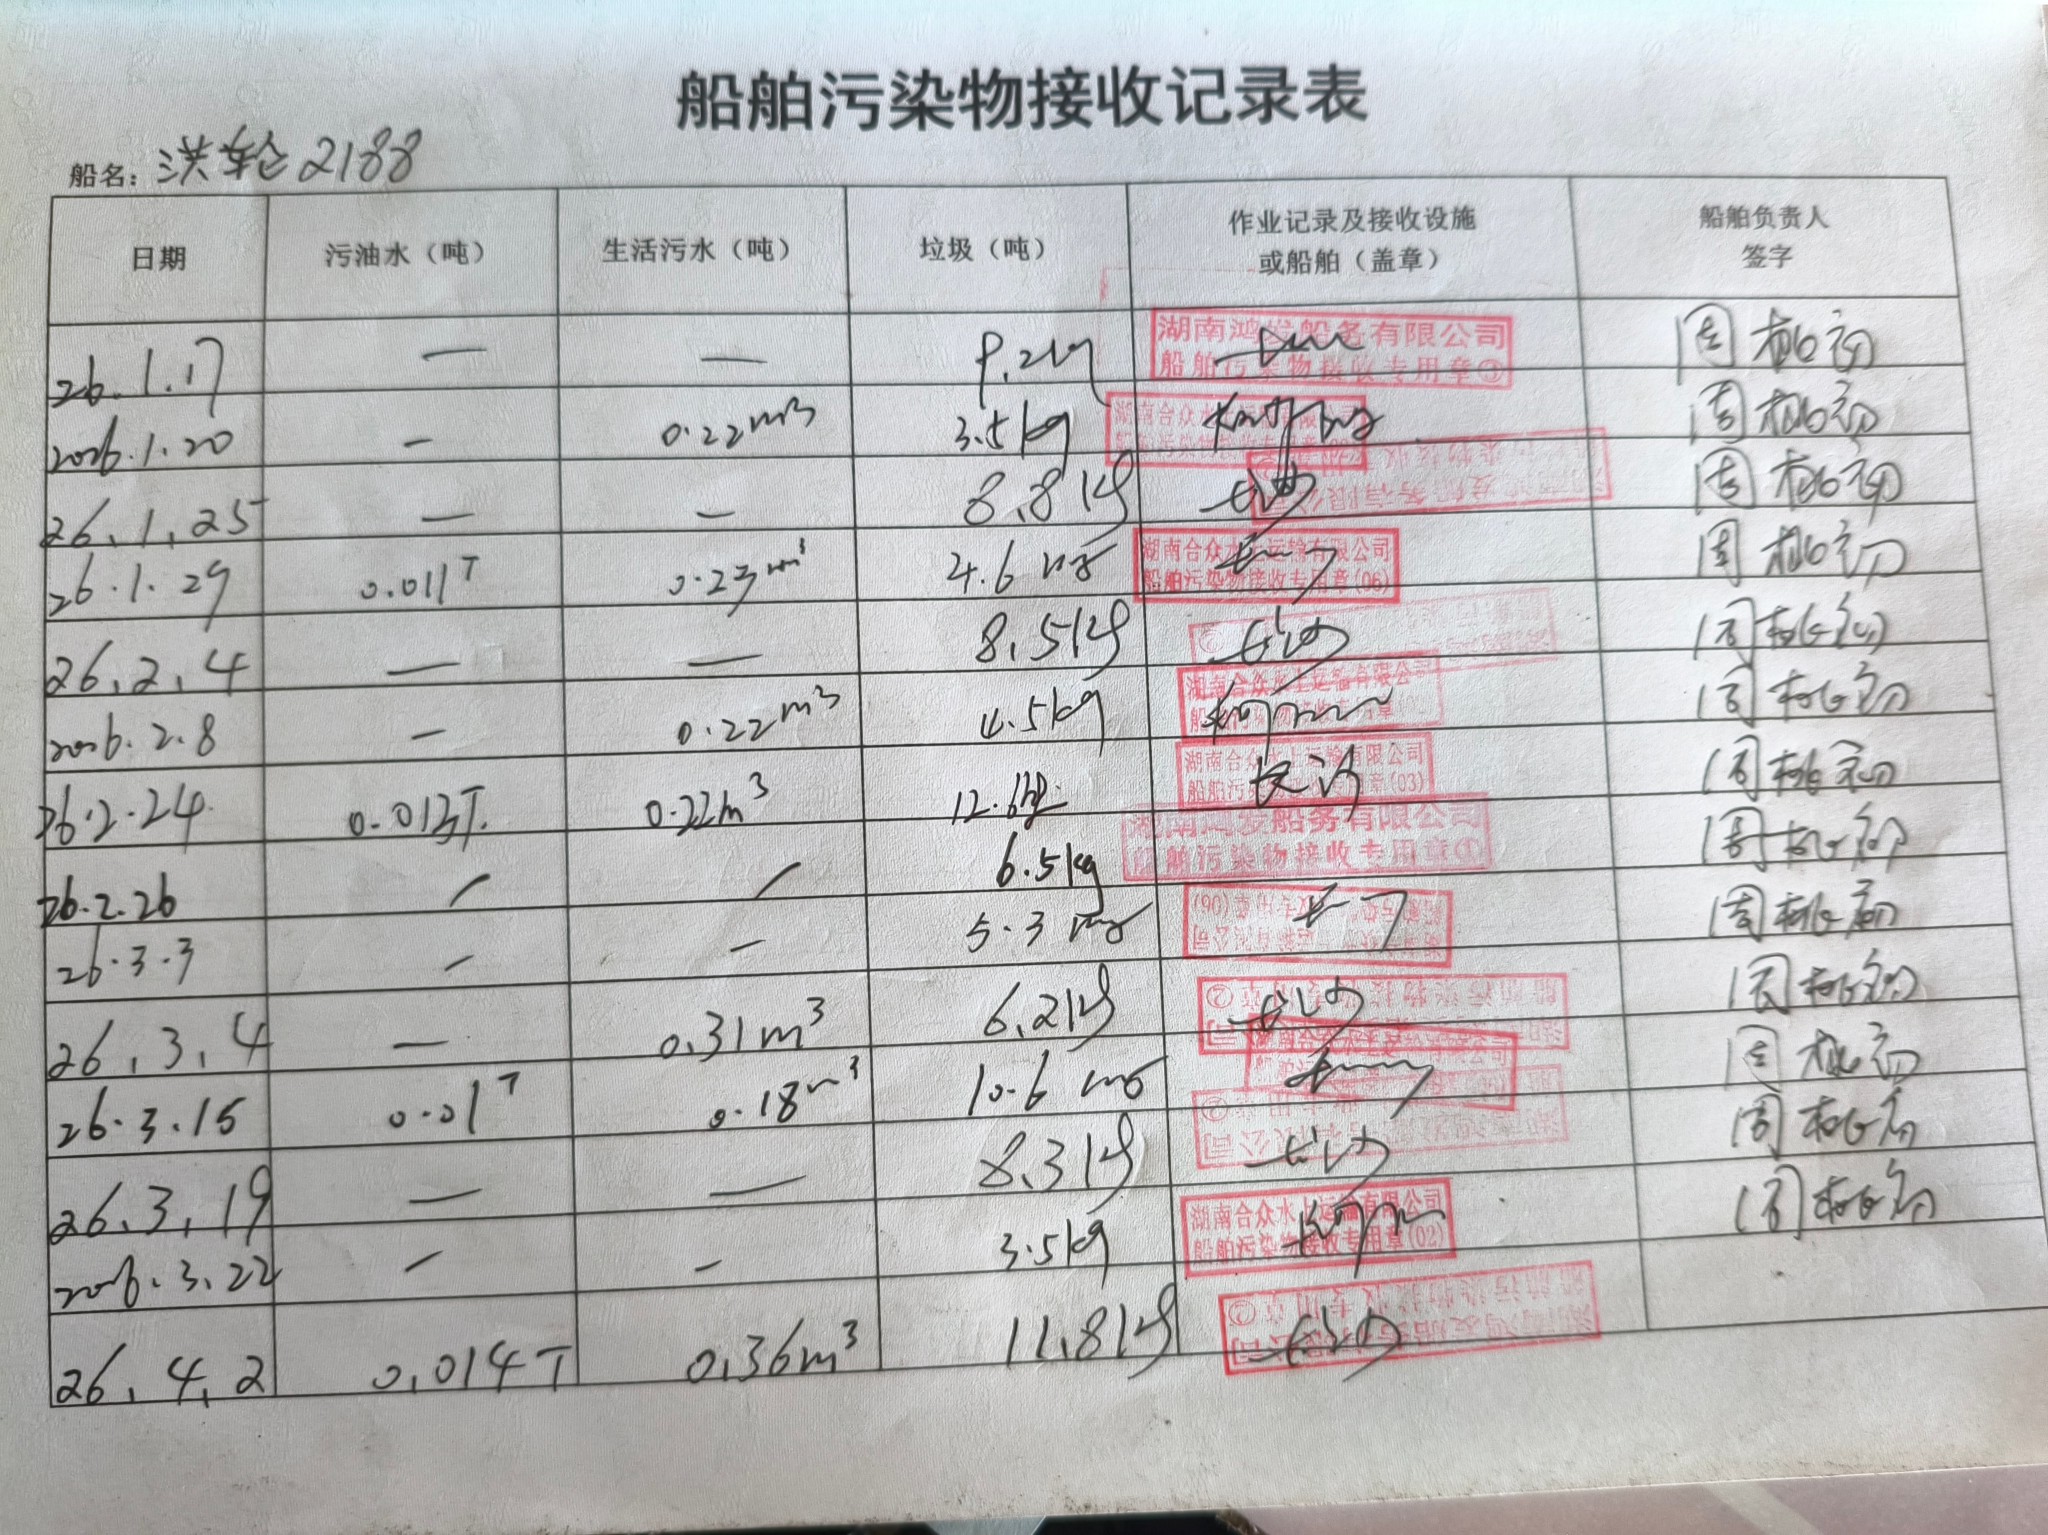 船舶污染物接收记录表
船名：洪轮2188
日期 污油水（吨） 生活污水（吨） 垃圾（吨） 作业记录及接收设施或船舶（盖章） 船舶负责人签字
26.1.17 — — 9.2kg 湖南鸿发船务有限公司 船舶污染物接收专用章① 周桃初
2026.1.20 - 0.22m³ 3.5kg 湖南合众水上运输有限公司 船舶污染物接收专用章 周桃初
26.1.25 — — 8.8kg 长沙 周桃初
26.1.29 0.011T 0.23m³ 4.6kg 湖南合众水上运输有限公司 船舶污染物接收专用章(06) 周桃初
26.2.4 — — 8.5kg 长沙 周桃初
2026.2.8 - 0.22m³ 4.5kg 湖南合众水上运输有限公司 船舶污染物接收专用章 周桃初
26.2.24. 0.013T. 0.22m³ 12.6kg 湖南合众水上运输有限公司 船舶污染物接收专用章(03) 长沙 周桃初
26.2.26 / / 6.5kg 湖南鸿发船务有限公司 船舶污染物接收专用章① 周桃初
26.3.3 - - 5.3kg 周桃初
26.3.4 — 0.31m³ 6.2kg 长沙 周桃初
26.3.15 0.01T 0.18m³ 10.6kg 周桃初
26.3.19 — — 8.3kg 长沙 周桃初
2026.3.22 - - 3.5kg 湖南合众水上运输有限公司 船舶污染物接收专用章(02) 周桃初
26.4.2 0.014T 0.36m³ 11.8kg 长沙